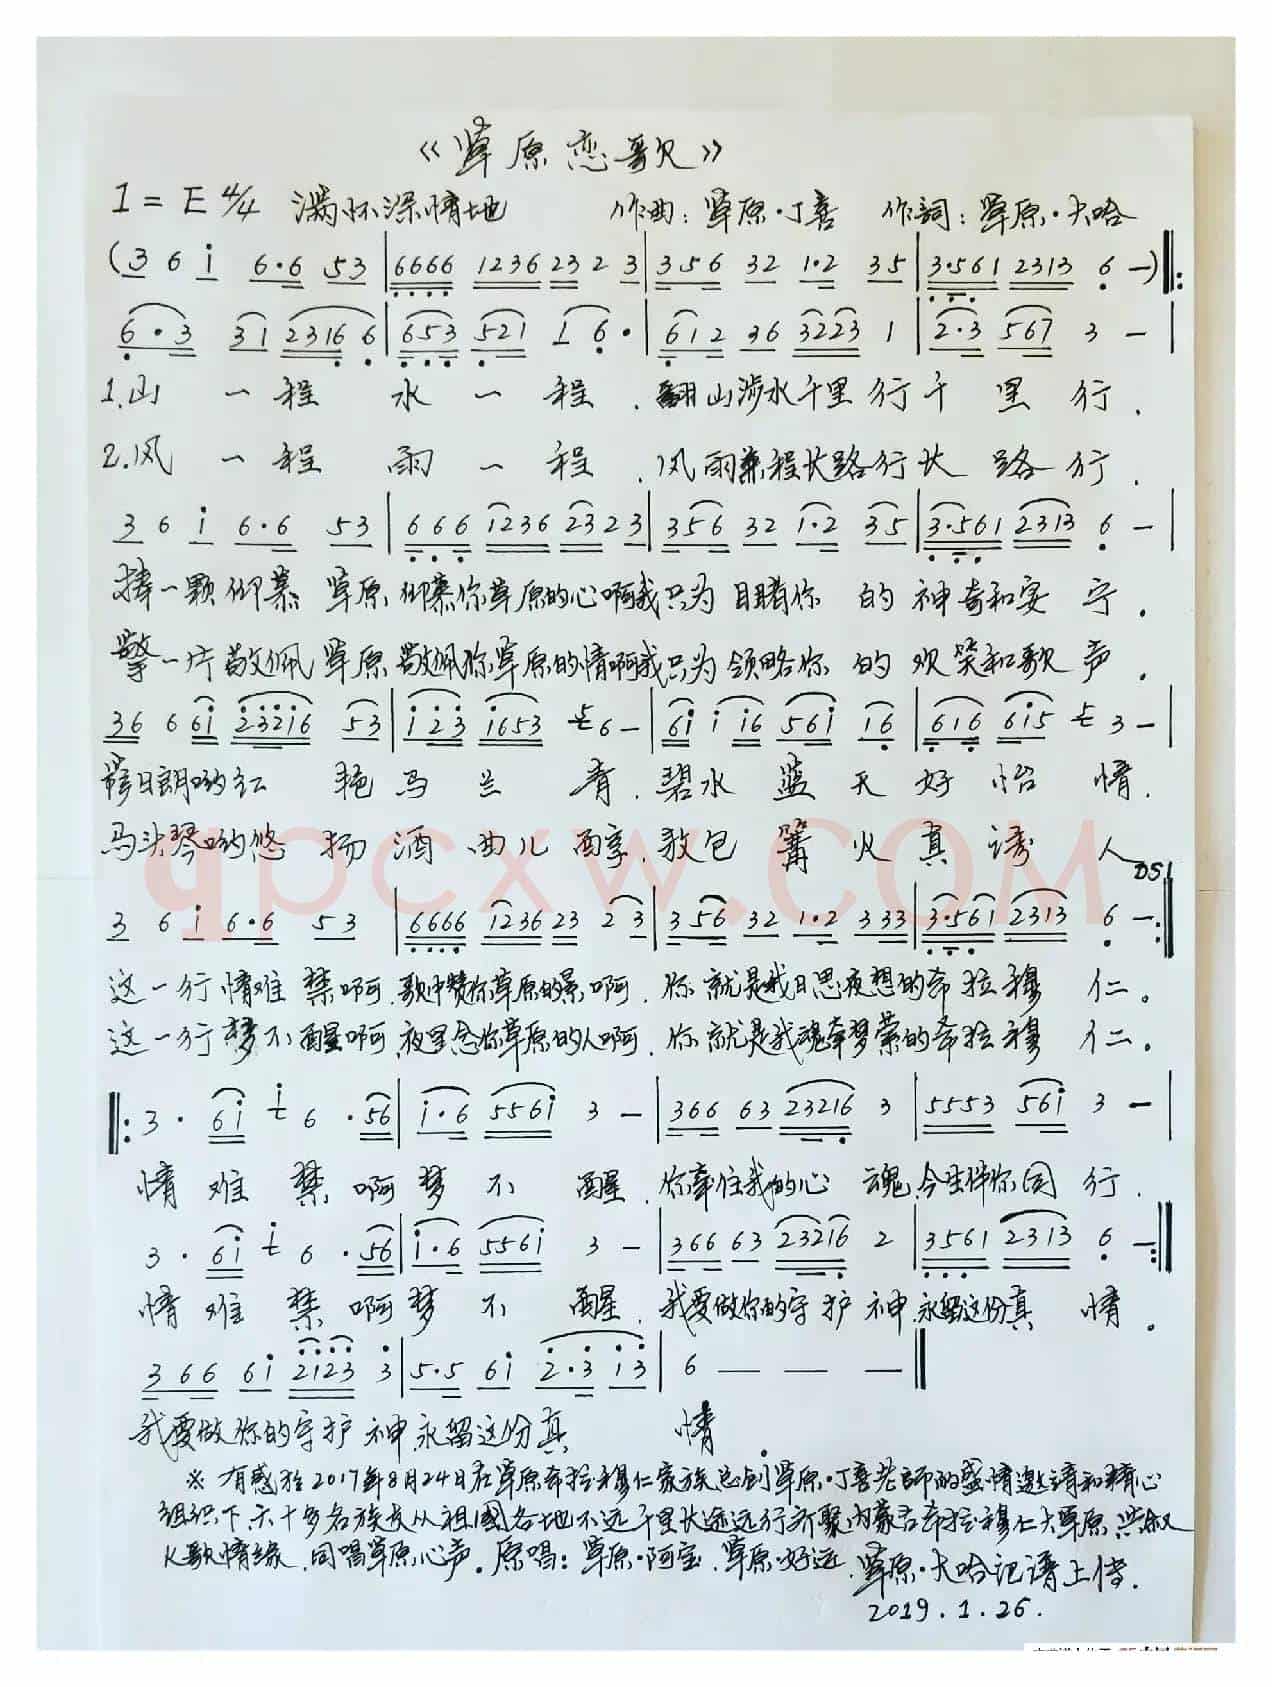 《草原恋歌》
1=E 4/4 满怀深情地 作曲：草原·丁喜 作詞：草原·大哈
(3 6 i 6·6 53 | 6666 1236 23 2 3 | 356 32 1·2 35 | 3·561 2313 6 —) ‖:
6·3 31 2316 6 | 653 521 1 6· | 612 36 3223 1 | 2·3 567 3 — |
1.山一程水一程.翻山涉水千里行千里行.
2.风一程雨一程.风雨兼程长路行长路行.
3 6 i 6·6 53 | 666 1236 23 2 3 | 356 32 1·2 35 | 3·561 2313 6 — |
捧一颗仰慕草原仰慕你草原的心啊我只为目睹你的神奇和安宁.
擎一片敬佩草原敬佩你草原的情啊我只为领略你的欢笑和歌声.
36 6 6i 23216 53 | i23 i653 5 6 — | 6i i i6 56i i6 | 616 6i5 5 3 — |
日朗哟红艳马兰青.碧水蓝天好怡情.
马头琴哟悠扬酒曲儿醇.敖包篝火真诱人
DS1
3 6 i 6·6 53 | 6666 1236 23 2 3 | 356 32 1·2 333 | 3·561 2313 6 — :‖
这一行情难禁啊.歌中赞你草原的景啊.你就是我日思夜想的希拉穆仁。
这一行梦不醒啊.夜里念你草原的人啊.你就是我魂牵梦萦的希拉穆仁。
‖: 3· 6i i 6· 56 | i·6 556i 3 — | 366 63 23216 3 | 5553 56i 3 — |
情难禁啊梦不醒.你牵住我的心魂.今生伴你同行.
3· 6i i 6· 56 | i·6 556i 3 — | 366 63 23216 2 | 3561 2313 6 — :‖
情难禁啊梦不醒.我要做你的守护神.永留这份真情。
366 6i 2123 3 | 5·5 6i 2·3 i3 | 6 — — — ‖
我要做你的守护神永留这份真情.
※有感於2017年8月24日在草原希拉穆仁家族总创草原·丁喜老師的盛情邀请和精心
组织下六十多名族友从祖國各地不远千里长途远行齐聚内蒙古希拉穆仁大草原共叙
K歌情缘.同唱草原心声。原唱：草原·阿宝.草原·好远.草原·大哈记谱上传.
2019.1.26.
qpcxw.COM